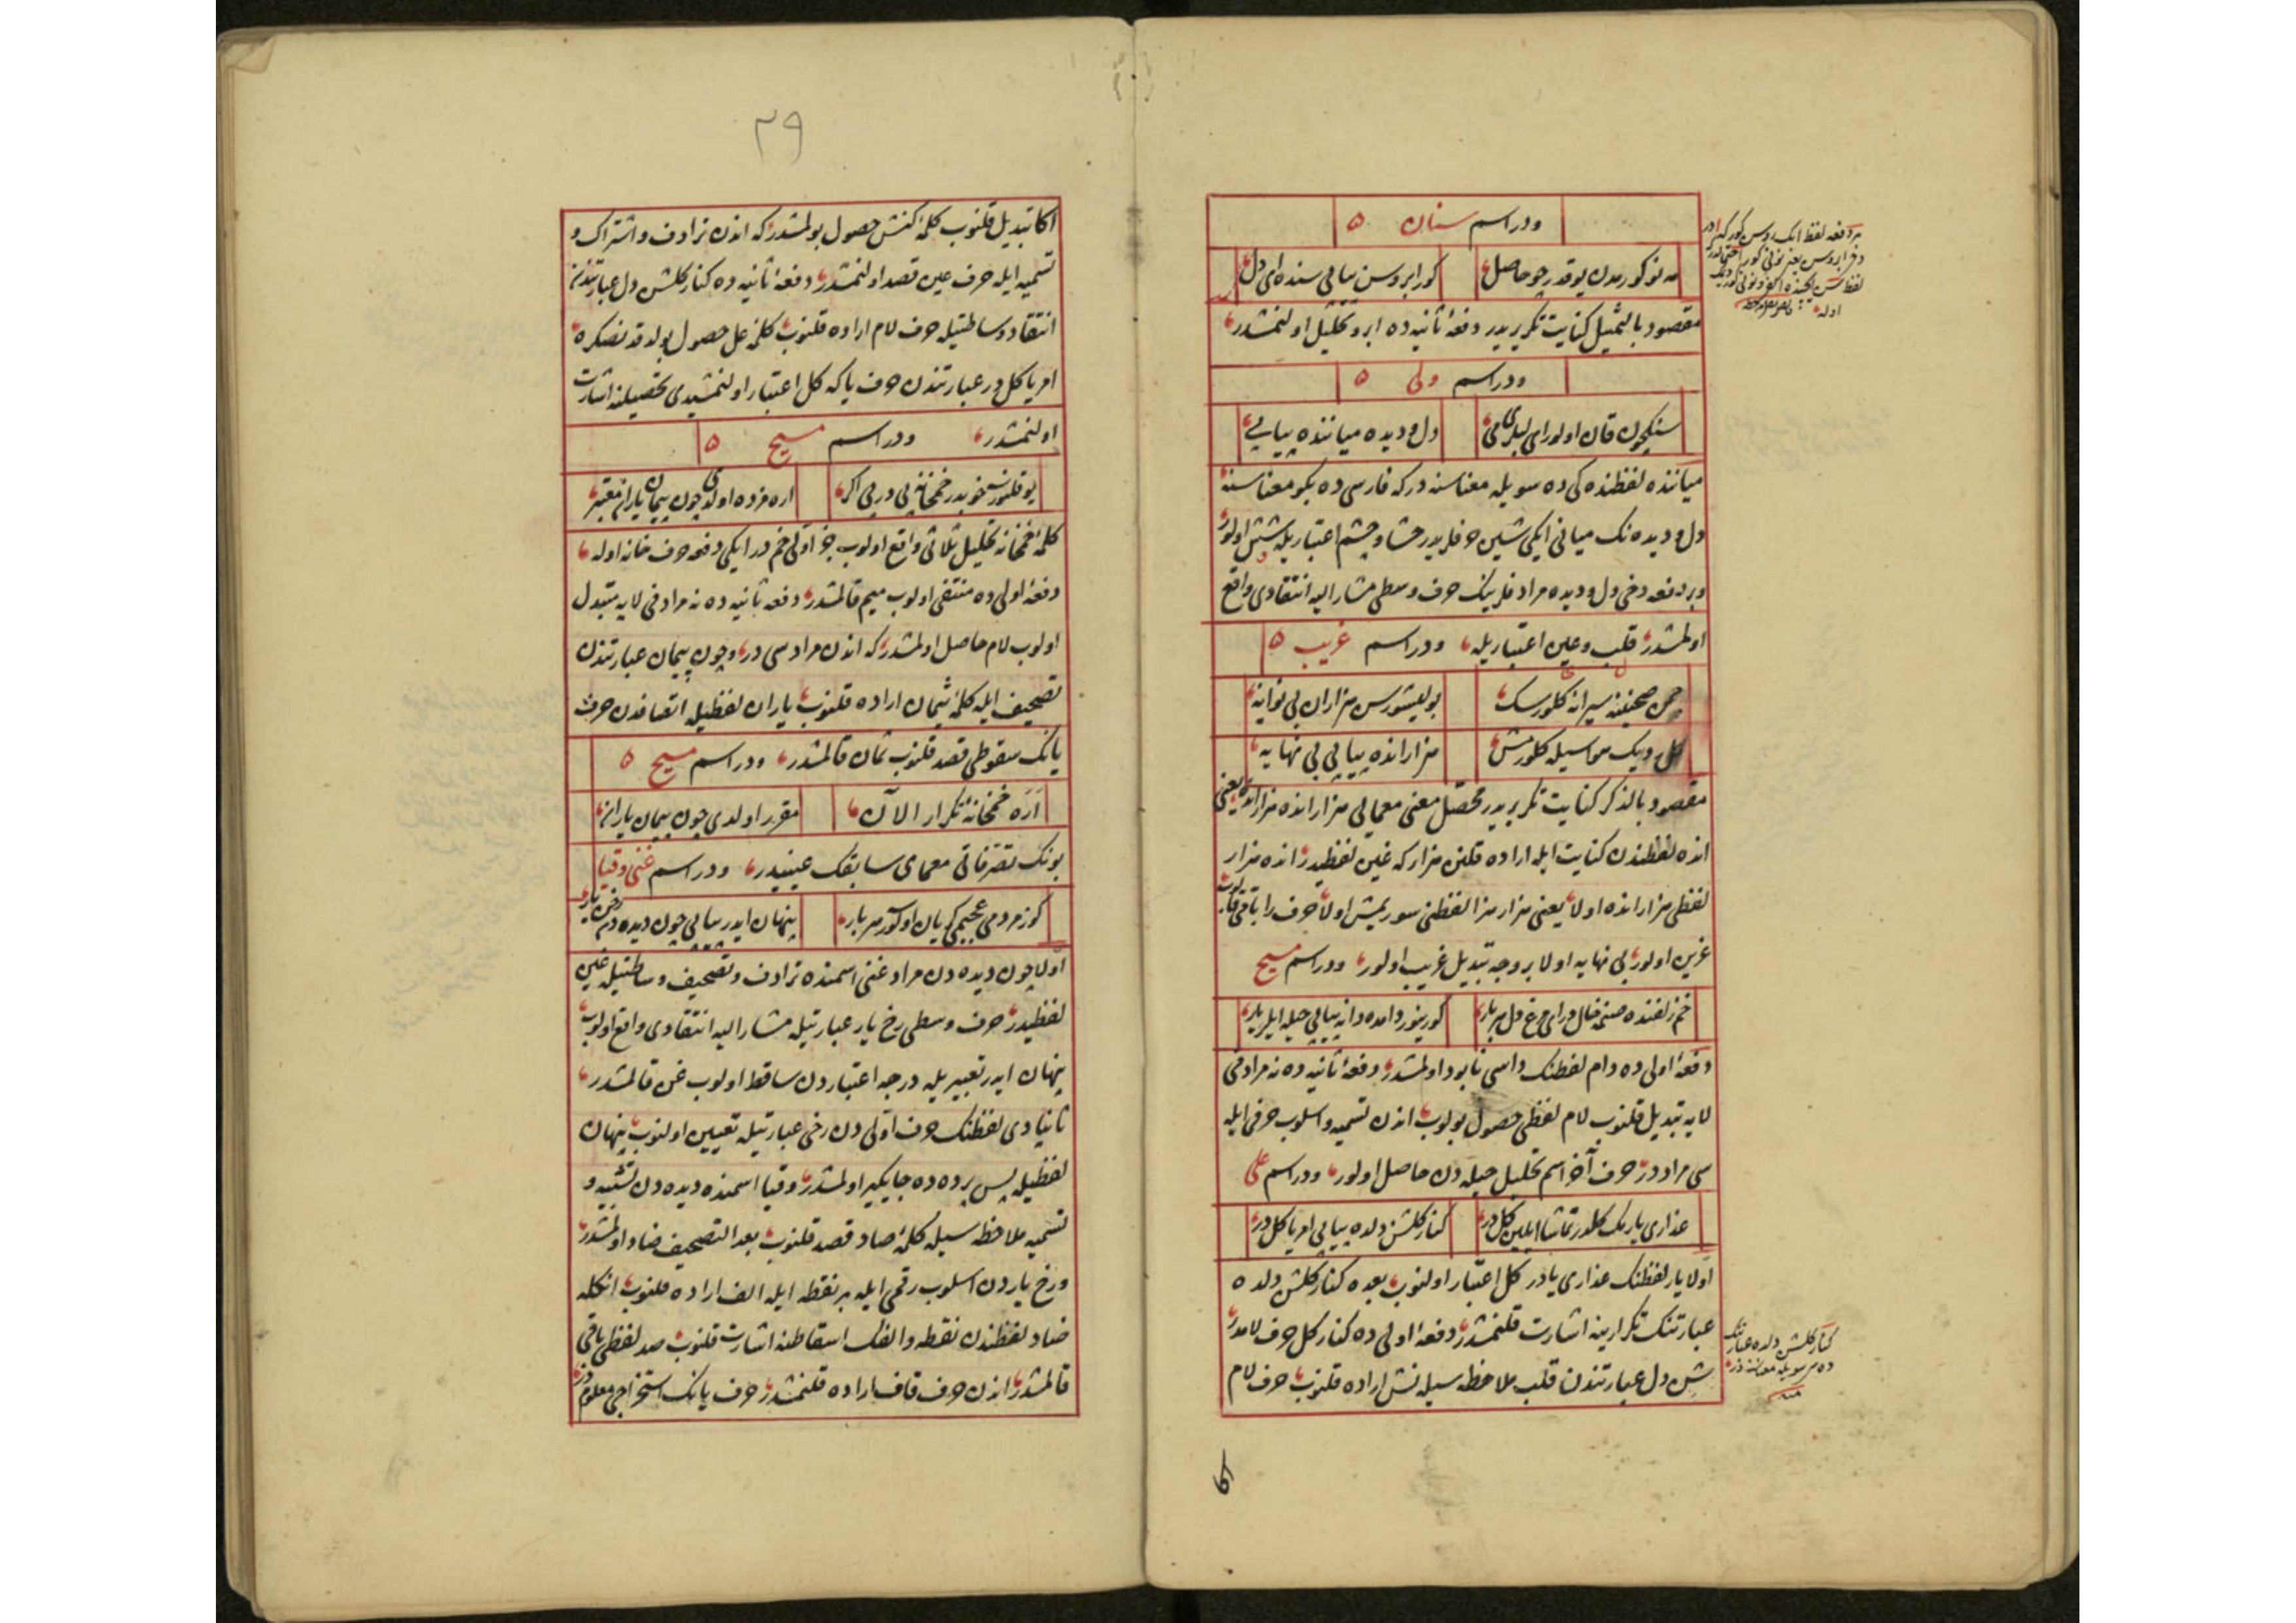 ودر اسم سنان ه
مه نو کورمدن یوقدر چو حاصل کور ابروسن بیاپی سنده ای دل
مقصود بالتمثیل کنایت تکریریدر دفعهٔ ثانیه ده ابرو تحلیل اولنمشدر
ودر اسم ولی ه
قان اولور ای دل و دیده میاننده بیاپی
میاننده لفظنده کی ده سویله معناسنه در که فارسی ده بکو معناسنه
دل و دیده نک میانی ایکی شین حرفلریدر حشا و چشم اعتباریله شش اولور
وبر دفعه دخی دل و دیده مرادفلرینک حرف وسطی مشار الیه انتقادی واقع
اولمشدر قلب وعین اعتباریله ودر اسم غریب ه
چمن صحنینه سیرانه کلورسک بولیشورسن هزاران بی نوایه
کل ویک کلورمش هزار انده بیاپی بی نهایه
مقصود بالذکر کنایت تکریریدر محصل معنی معمایی هزار انده هزار انده یعنی
انده لفظندن کنایت ایله اراده قلنن هزار که غین لفظیدر انده هزار
لفظی هزار انده اولا یعنی هزار هزار لفظنی اولا حرف را باقی قالوب
غرین اولور بی نهایه اولا بر وجه تبدیل غریب اولور ودر اسم مسیح
خم زلفنده صنمه خال ور ای مرغ دل هر بار کورینور دامده دانه بیاپی حیله ایلر یار
دفعهٔ اولی ده دام لفظنک داسی نابود اولمشدر دفعهٔ ثانیه ده نه مرادفی
لایه تبدیل قلنوب لام لفظی حصول بولوب اندن تسمیه واسلوب حرفی ایله
سی مراددر حرف آخر اسم تحلیل حیله دن حاصل اولور ودر اسم علی
عذاری یارک کلدر تماشا ایلین کل در کنار کلشن دلده بیاپی امر یا کل در
اولا یار لفظنک عذاری یادر کل اعتبار اولنوب بعده کنار کلشن دلده
عبارتنک تکرارینه اشارت قلنمشدر دفعهٔ اولی ده کنار کل حرف لامدر
شن دل عبارتندن قلب ملاحظه سیله نش اراده قلنوب حرف لام
کنار کلشن دلده عبارتنک
ده سی سویله معناسنه در
منه
٢٩
اکا تبدیل قلنوب کلمهٔ کنش حصول بولمشدر که اندن ترادف واشتراک و
تسمیه ایله حرف عین قصد اولنمشدر دفعهٔ ثانیه ده کنار کلشن دل عبارتندن
انتقاد وساطتیله حرف لام اراده قلنوب کلمهٔ عل حصول بولدقدنصکره
امر یا کل در عبارتندن حرف یا که کل اعتبار اولنمشیدی تحصیلنه اشارت
اولنمشدر ودر اسم مسیح ه
خمخانه پی در پی اره مزده اولدی چون پیمان یاران معتبر
کلمهٔ خمخانه تحلیل ثلاثی واقع اولوب جزء اولی خم در ایکی دفعه حرف خانه اوله
دفعهٔ اولی ده منتفی اولوب میم قالمشدر دفعه ثانیه ده نه مرادفی لایه متبدل
اولوب لام حاصل اولمشدر که اندن مراد سی در وچون پیمان عبارتندن
تصحیف ایله کلمهٔ ثیمان اراده قلنوب یاران لفظیله اتصافدن حرف
یانک سقوطی قصد قلنوب ثمان قالمشدر ودر اسم مسیح ه
اره خمخانهٔ تکرار الآن مقرر اولدی چون پیمان یارانه
بونک تصرفاتی معمای سابقک عینیدر ودر اسم غنی وقیا
کوز مردمی کریان اولور هر بار پنهان ایدر بیاپی چون دیده دن رخن یار
اولا چون دیده دن مراد غنی اسمنده ترادف وتصحیف وساطتیله غین
لفظیدر حرف وسطی رخ یار عبارتیله مشار الیه انتقادی واقع اولوب
پنهان ایدر تعبیریله درجه اعتباردن ساقط اولوب غن قالمشدر
ثانیا دی لفظنک حرف اولی دن رخی عبارتیله تعیین اولنوب پنهان
لفظیله پس پرده ده جایکیر اولمشدر وقیا اسمنده دیده دن تشبیه و
تسمیه ملاحظه سیله کلمهٔ صاد قصد قلنوب بعد التصحیف ضاد اولمشدر
ورخ یاردن اسلوب رقمی ایله بر نقطه ایله الف اراده قلنوب انکله
ضاد لفظندن نقطه والفک اسقاطنه اشارت قلنوب صد لفظی باقی
قالمشدر اندن حرف قاف اراده قلنمشدر حرف یانک استخراجی معلومدر